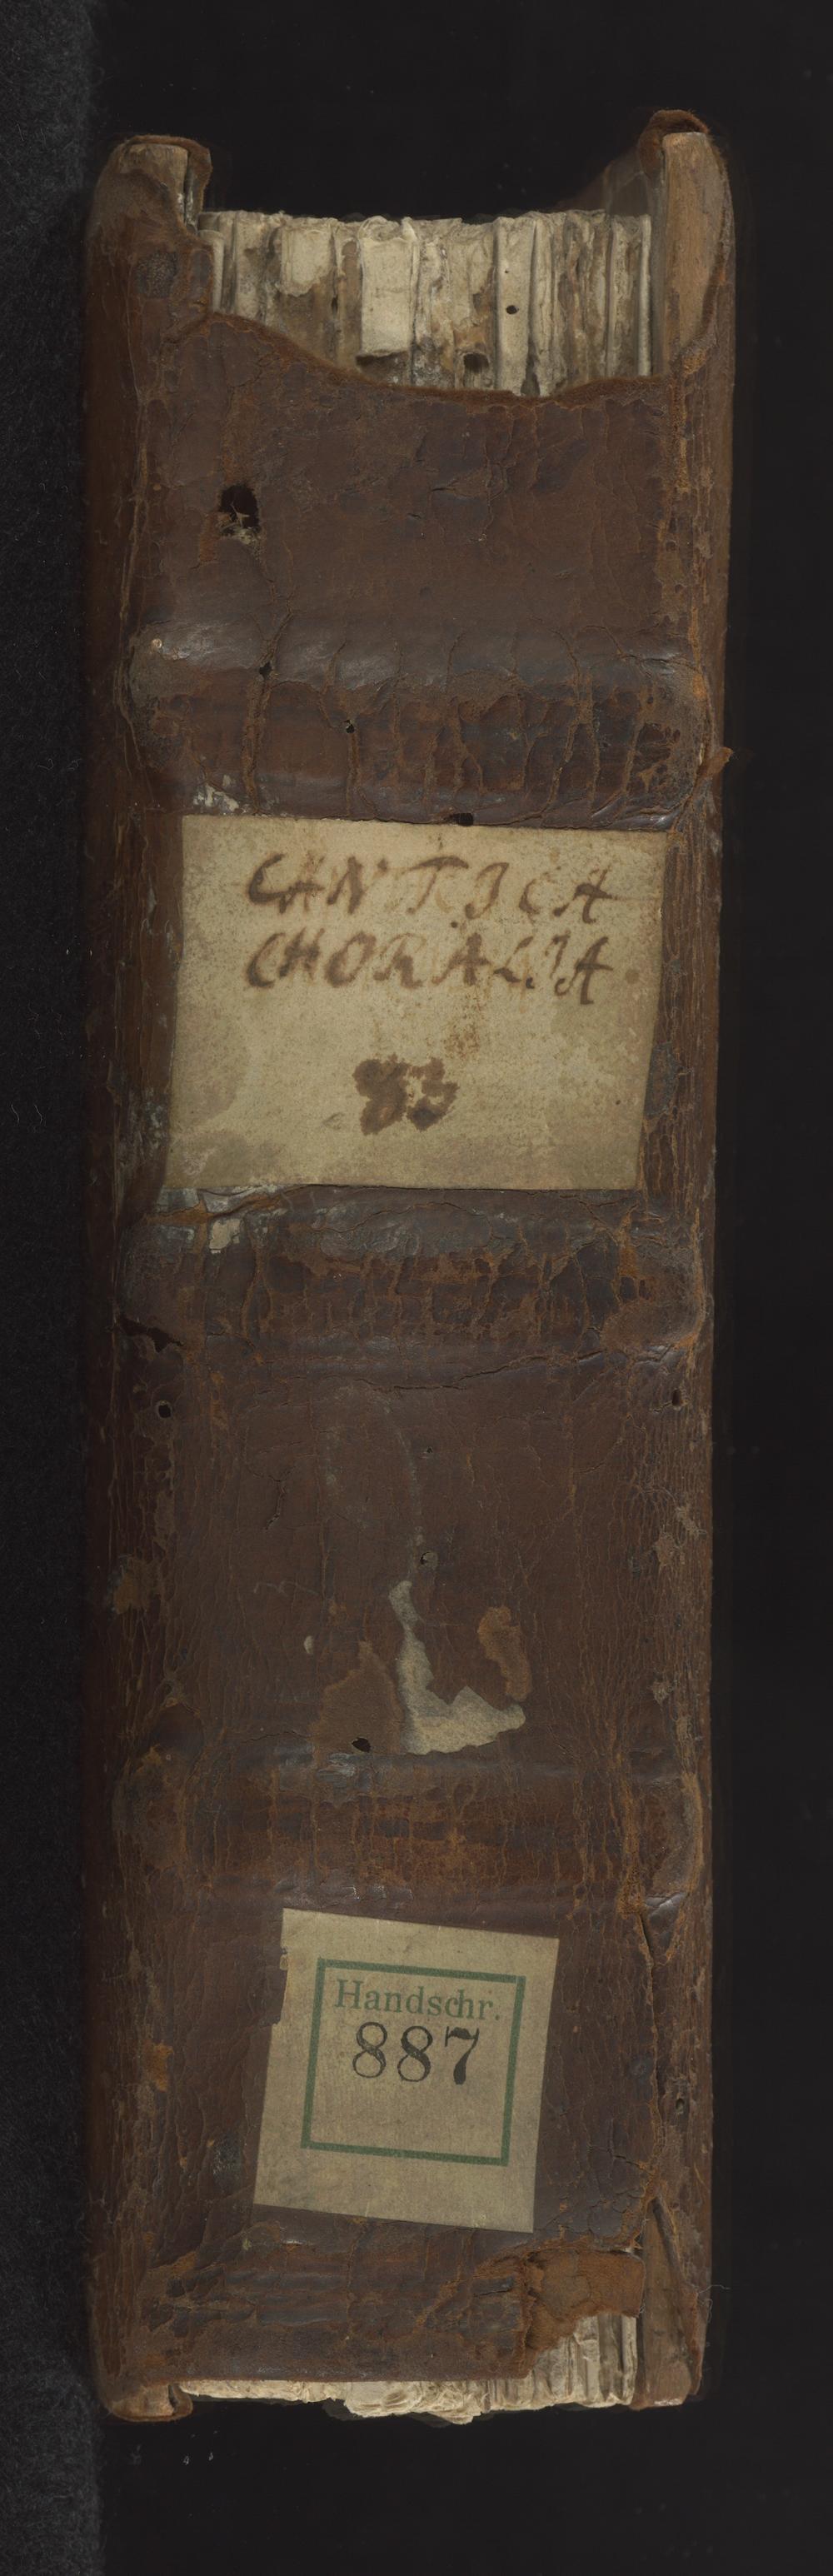 CANTICA
CHORALIA
83
Handschr.
887